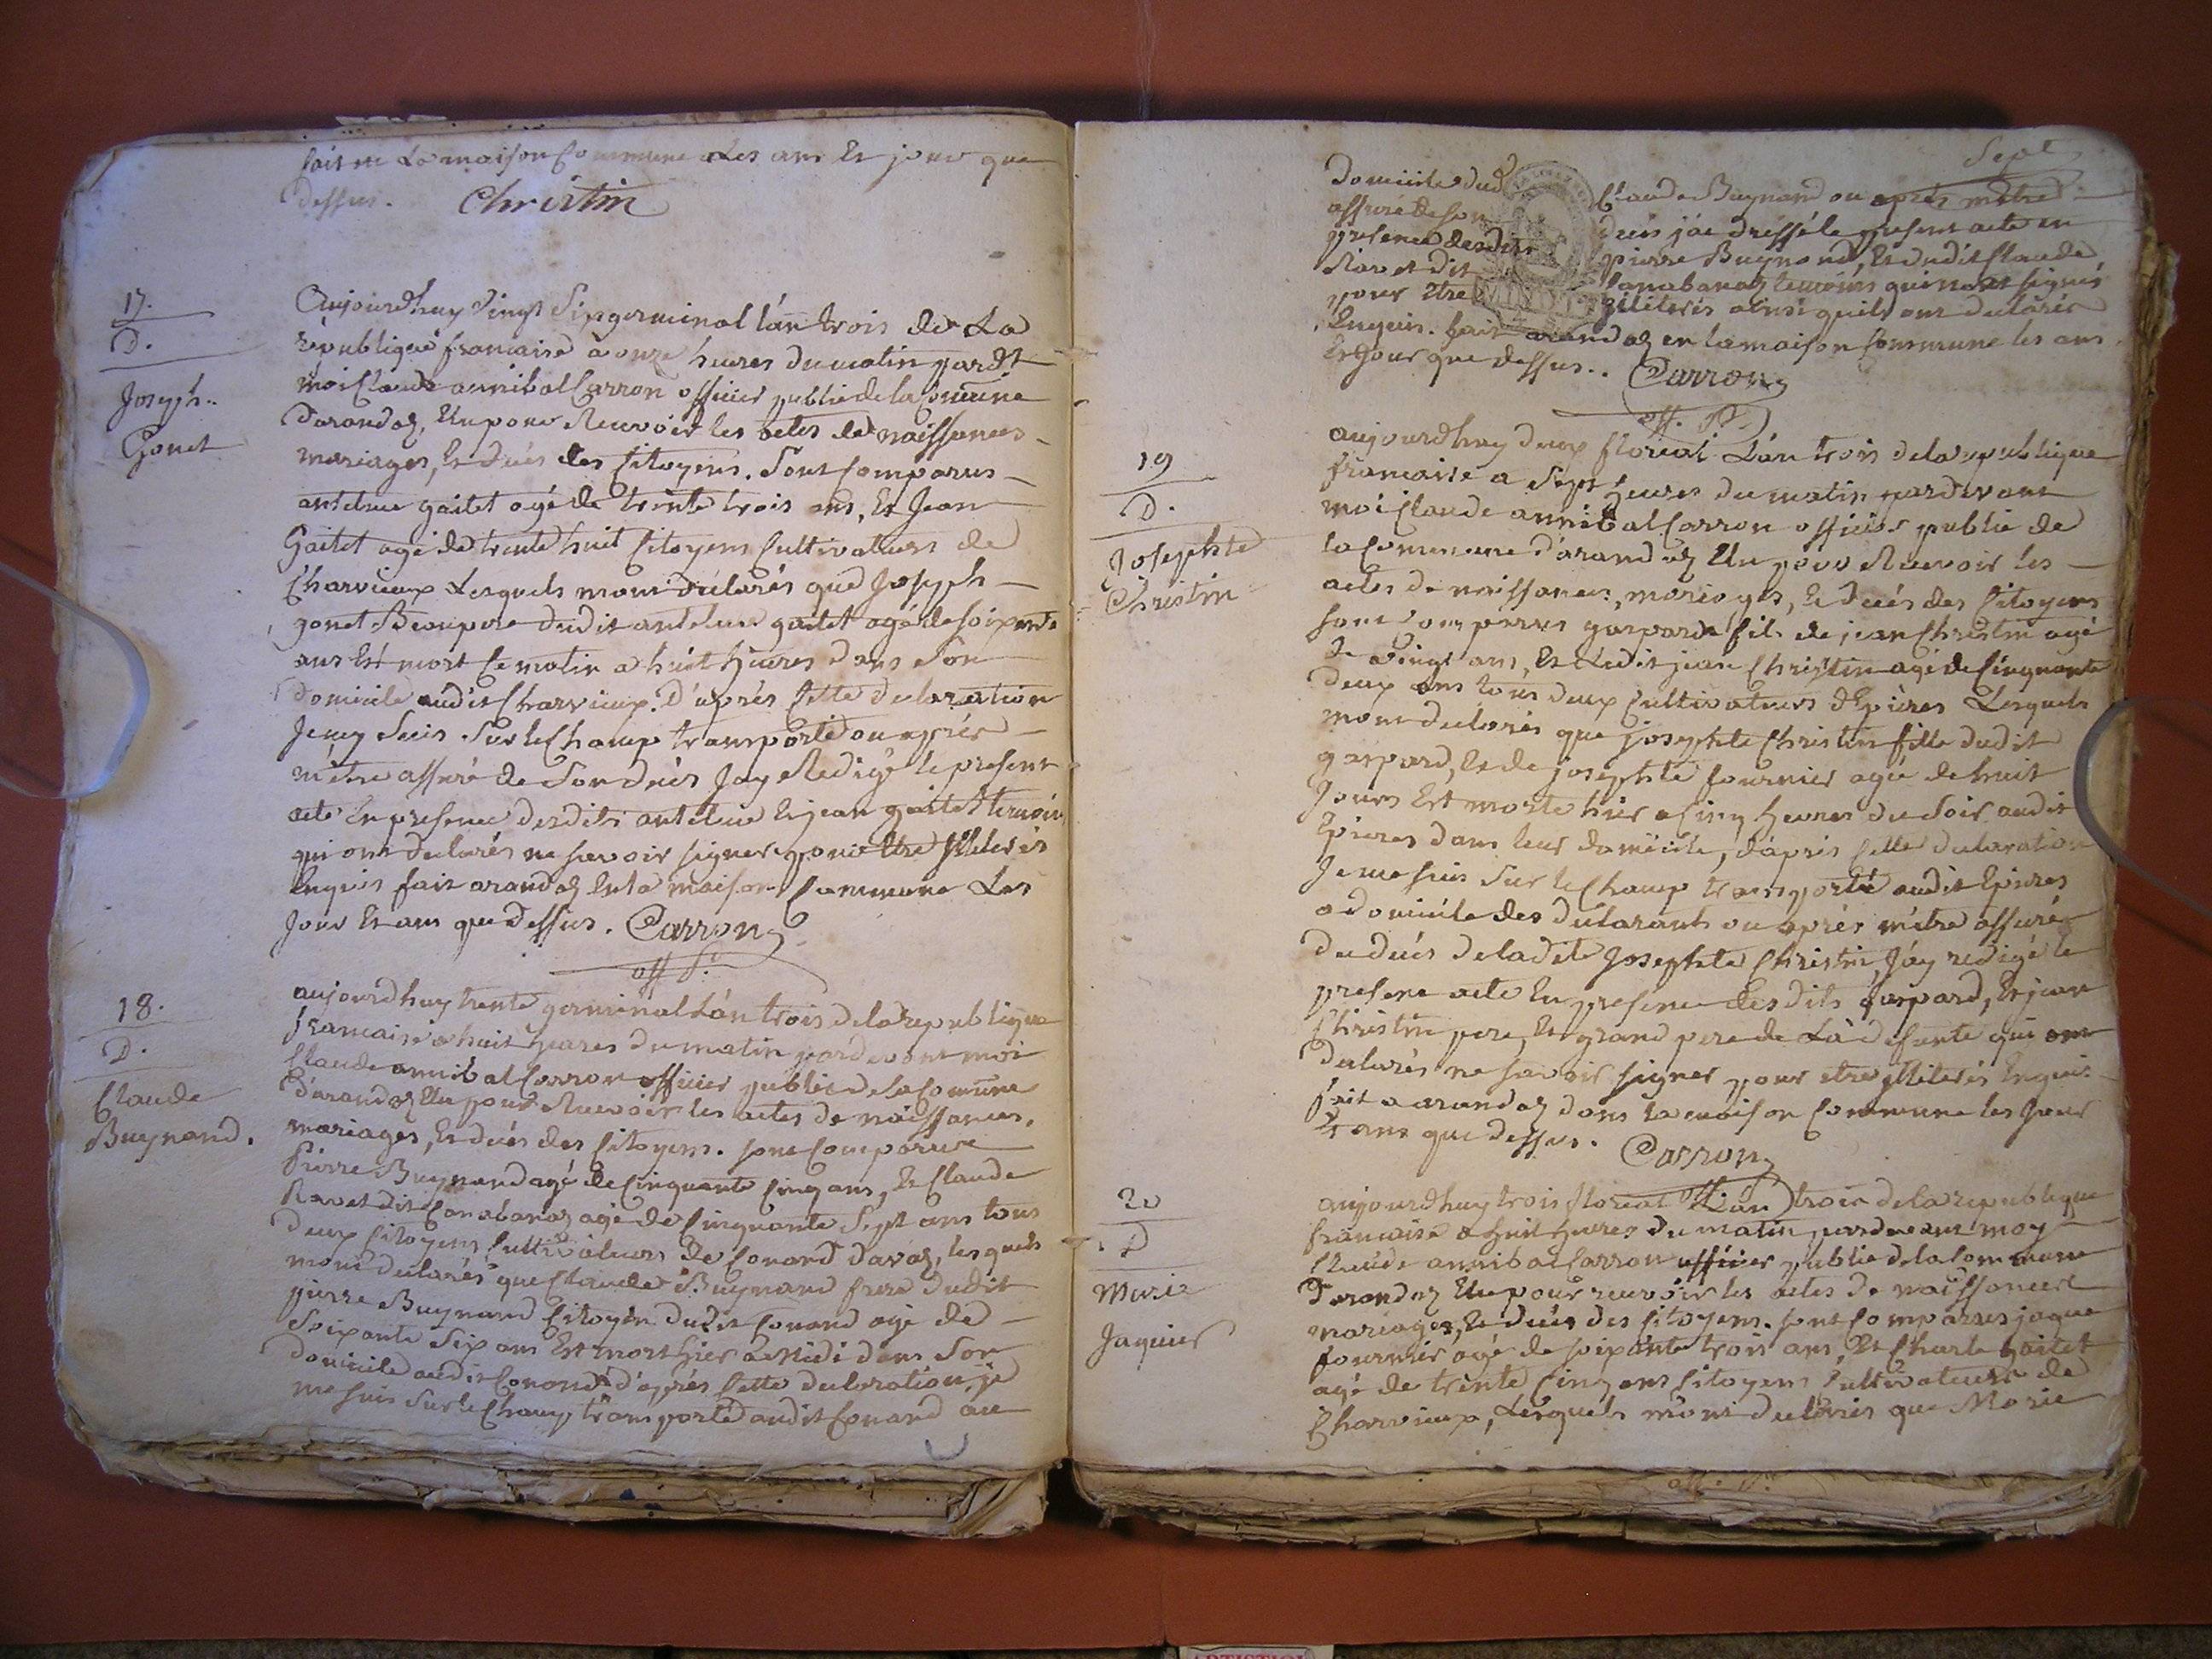 fait en La maison Commune Les ans Et jour que
dessus. Christin
17.
D.
Joseph..
Gonet
Aujourdhuy vingt Six germinal l'an trois de La
république francaise à onze heures du matin pardt
moi Claude annibal Carron officier public de la Comune
darandaz, Elu pour Recevoir les actes de naissances
mariages, Et décés des Citoyens. Sont Comparus
antelme gaitet agé de trente trois ans, Et Jean
Gaitet agé de trente huit Citoyens Cultivateurs de
Charvieux Lesquels mont déclarés que Joseph
gonet Beaupere dudit antelme gaitet agé de soixante
ans Est mort Ce matin a huit heures dans Son
domicile audit Charvieux. D'aprés Cette declaration
Jemy Suis Sur le Champ transporté ou apprés
m'être assuré de Son décés Jay Redigé le present
acte En presence desdits antelme Et jean gaitet temoins
qui ont declarés ne savoir signer pour Etre illiterés
Enquis fait arandaz En la maison Commune Les
Jour Et ans que dessus. Carron
off. P.
18.
D.
Claude
Buynand.
aujourdhuy trente germinal L'an trois de la republique
francaise a huit heures du matin pardevant moi
Claude annibal Carron officier public de la Comune
d'arandaz Elu pour Recevoir les actes de naissances,
mariages, Et décés des Citoyens. sont Comparus
Pierre Buynand agé de Cinquante Cinq ans, Et Claude
Ravet dit Canabaraz agé de Cinquante Sept ans tous
deux Citoyens Cultivateurs de Conand davaz, lesquels
mont declarés que Claude Buynand frere dudit
pierre Buynand Citoyen dudit Conand agé de
Soixante Six ans Est mort hier a Midi dans Son
domicile audit Conand d'aprés Cette declaration je
me suis Sur le Champ transporté audit Conand au
Sept
Domicile dud Claude Buynand ou aprés m'être
assuré de son décés j'ai dressé le present acte en
presence desdits pierre Buynand, Et dudit Claude
Ravet dit Canabaraz temoins qui n'ont signés
pour Etre illiterés ainsi quils ont declarés
Enquis. fait arandaz en la maison Commune les ans
Et Jour que dessus.. Carron
off. P.
19
D.
Josephte
Christin
aujourdhuy deux floréal L'an trois de la republique
francaise a Sept heures du matin pardevant
moi Claude annibal Carron officier public de
la Commune d'arandaz Elu pour Recevoir les
actes de naissances, mariages, Et décés des Citoyens
sont Comparrus gaspard fils de jean Christin agé
de vingt ans, Et Ledit jean Christin agé de Cinquante
deux ans tous deux Cultivateurs d'Epieres Lesquels
mont declarés que josephte Christin fille dudit
gaspard, Et de josephte fournier agée de huit
Jours Est morte hier a Cinq heures du Soir audit
Epieres dans leur domicile, d'aprés Cette declaration
Je me suis Sur le Champ transporté audit Epieres
a domicile des déclarants ou aprés m'être assuré
du décés de ladite Josephte Christin J'ay redigé le
present acte En presence desdits gaspard, Et jean
Christin pere, Et grand pere de La défunte qui ont
declarés ne savoir signer pour etre illiterés Enquis
fait a arandaz dans la maison Commune les Jour
Et ans que dessus. Carron
off. P.
20
D
Marie
Jaquier
aujourdhuy trois floréal L'an trois de la republique
francaise a huit heures du matin, pardevant moy
Claude annibal Carron officier public de la Commune
Darandaz Elu pour recevoir les actes de naissances
mariages, Et décés des Citoyens. sont Comparrus jaque
fournier agé de soixante trois ans, Et Charle gaitet
agé de trente Cinq ans Citoyens Cultivateurs de
Charvieux, Lesquels m'ont declarés que Marie
off. P.